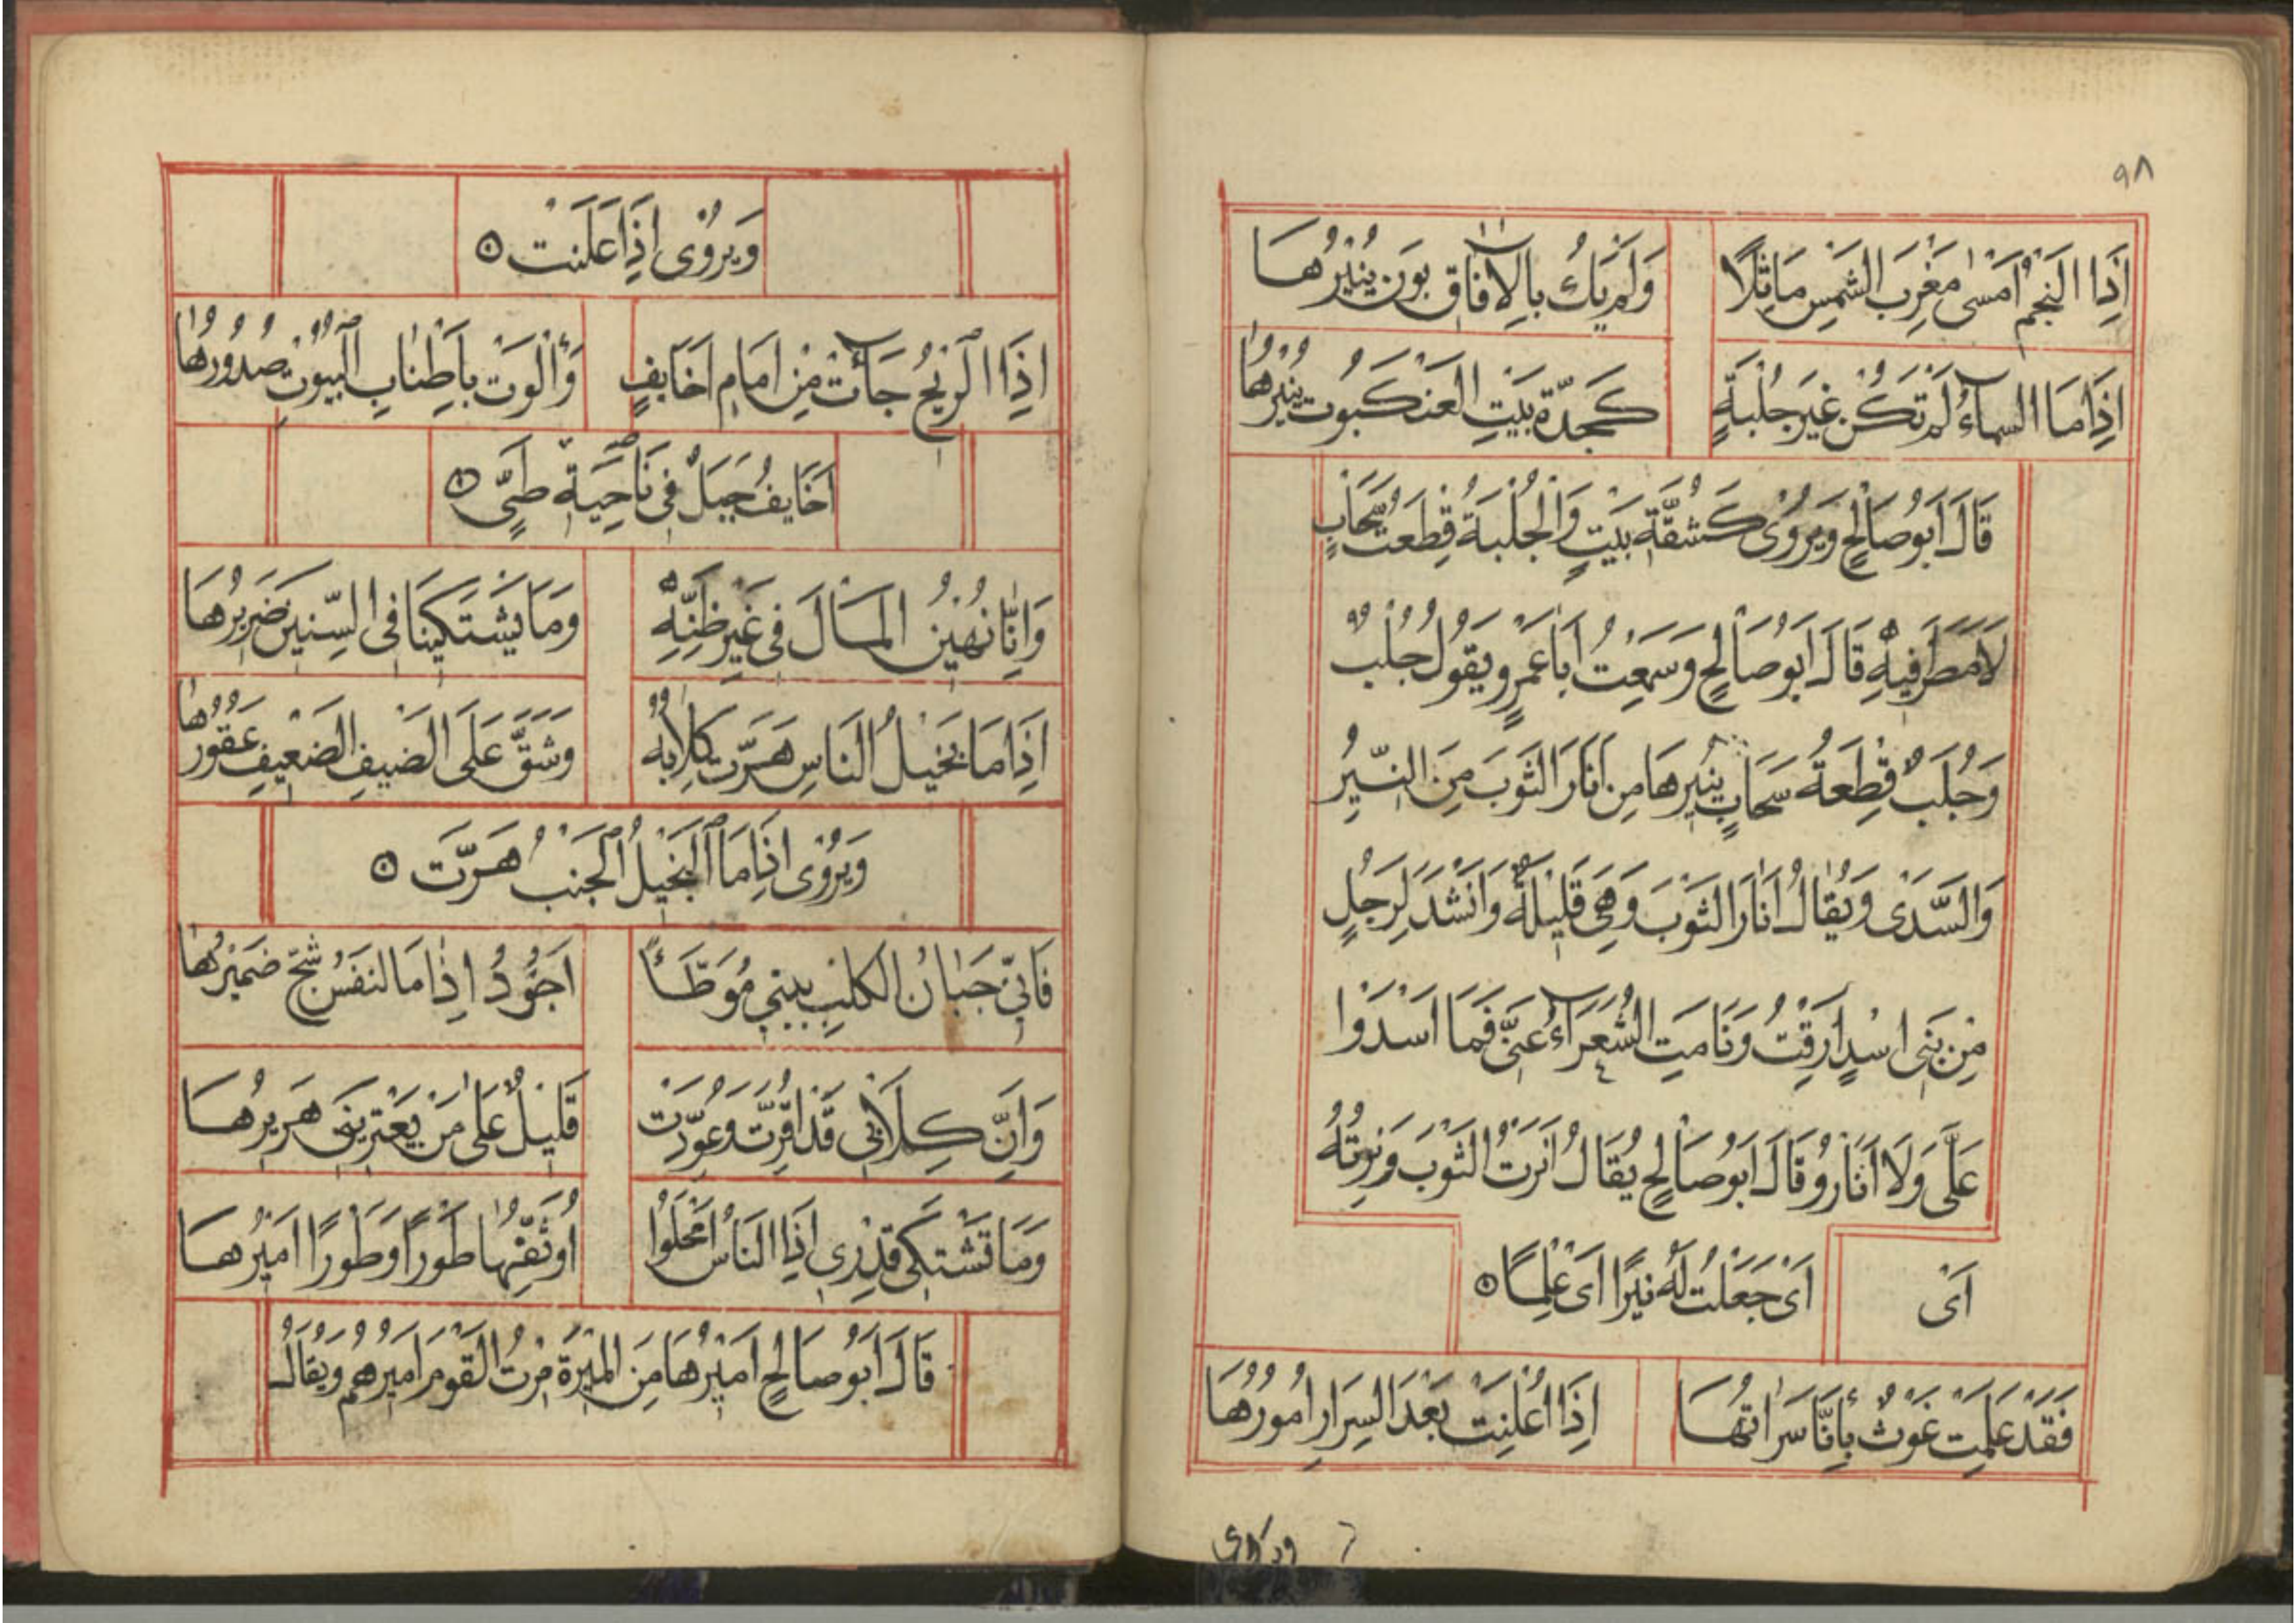 ٩٨
اِذَا النَجْمُ اَمْسٰى مَغْرِبَ الشَمْسِ مَاثِلًا وَلَمْ يَكُ بِالآفَاقِ بَوْنٌ يُنِيْرُهَا
اِذَا مَا السمآءُ لَمْ تَكُنْ غَيْرَ جُلْبَةٍ كَجِدَّةِ بَيْتِ العَنْكَبُوتِ يُنِيْرُهَا
قَالَ اَبُو صَالِحٍ وَيُرْوٰى كَشُقَّةِ بَيْتٍ وَالْجُلْبَةُ قِطْعَةُ سَحَابٍ
لَا مَطَرَ فِيهِ قَالَ اَبُو صَالِحٍ وَسَمِعْتُ اَبَا عَمْرٍو يَقُولُ جُلْبٌ
وَجُلَبٌ قِطْعَةُ سَحَابٍ يُنِيْرُهَا مِن اَنَارَ الثَوْبَ مِنَ النِّيْرِ
وَالسَّدَىْ وَيُقَالُ اَنَارَ الثَوْبَ وَهِيَ قَلِيْلَةٌ وَاَنْشَدَ لِرَجُلٍ
مِنْ بَنِى اسْدٍ اَرِقْتُ وَنَامَتِ الشُعَرَآءُ عَنِّى فَمَا اَسْدَوْا
عَلَىَّ وَلَا اَنَارُو قَالَ اَبُو صَالِحٍ يُقَالُ اَنَرْتُ الثَوْبَ وَنِرْتُهُ
اَىْ اَىْ جَعَلْتُ لَهُ نِيْرًا اَىْ عَلَمًا
فَقَدْ عَلِمَتْ غَوْثٌ بِاَنَّا سَرَاتُهَا اِذَا اُعْلِنَتْ بَعْدَ السِرَارِ اُمُورُهَا
ويروى
وَيُرْوٰى اِذَا عَلَنَتْ
اِذَا الرِيْحُ جَآءَتْ مِنْ اَمَامِ اَخَايِفٍ وَاَلْوَتْ بِاَطْنَابِ الْبُيُوْتِ صُدُوْرُهَا
اَخَايِفُ جَبَلٌ فِى نَاحِيَةِ طَيٍّ
وَاِنَّا نُهِيْنُ الْمَالَ فِى غَيْرِ ظِنَّةٍ وَمَا يَشْتَكِيْنَا فِى السِّنِيْنَ ضَرِيْرُهَا
اِذَا مَا بَخِيْلُ النَاسِ هَرَّتْ كِلَابُهُ وَشَقَّ عَلَى الضَيْفِ الضَعِيْفِ عَقُوْرُهَا
وَيُرْوٰى اِذَا مَا الْبَخِيْلُ الْجَنْبُ هَرَّتْ
فَاِنِّى جَبَانُ الكَلْبِ بَيْتِى مُوَطَّأً اَجُوْدُ اِذَا مَا النَفْسُ شَحَّ ضَمِيْرُهَا
وَاِنَّ كِلَابِى قَدْ اُقِرَّتْ وَعُوِّدَتْ قَلِيْلٌ عَلَى مَنْ يَعْتَرِيْنِى هَرِيرُهَا
وَمَا تَشْتَكِى قِدْرِى اِذَا النَاسُ اَمْحَلُوا اُوَثِّفُهَا طَوْرًا وَطَوْرًا اَمِيْرُهَا
قَالَ اَبُو صَالِحٍ اَمِيْرُهَا مِنَ الْمِيْرَةِ مِرْتُ القَوْمَ اَمِيْرُهُمْ وَيُقَالُ